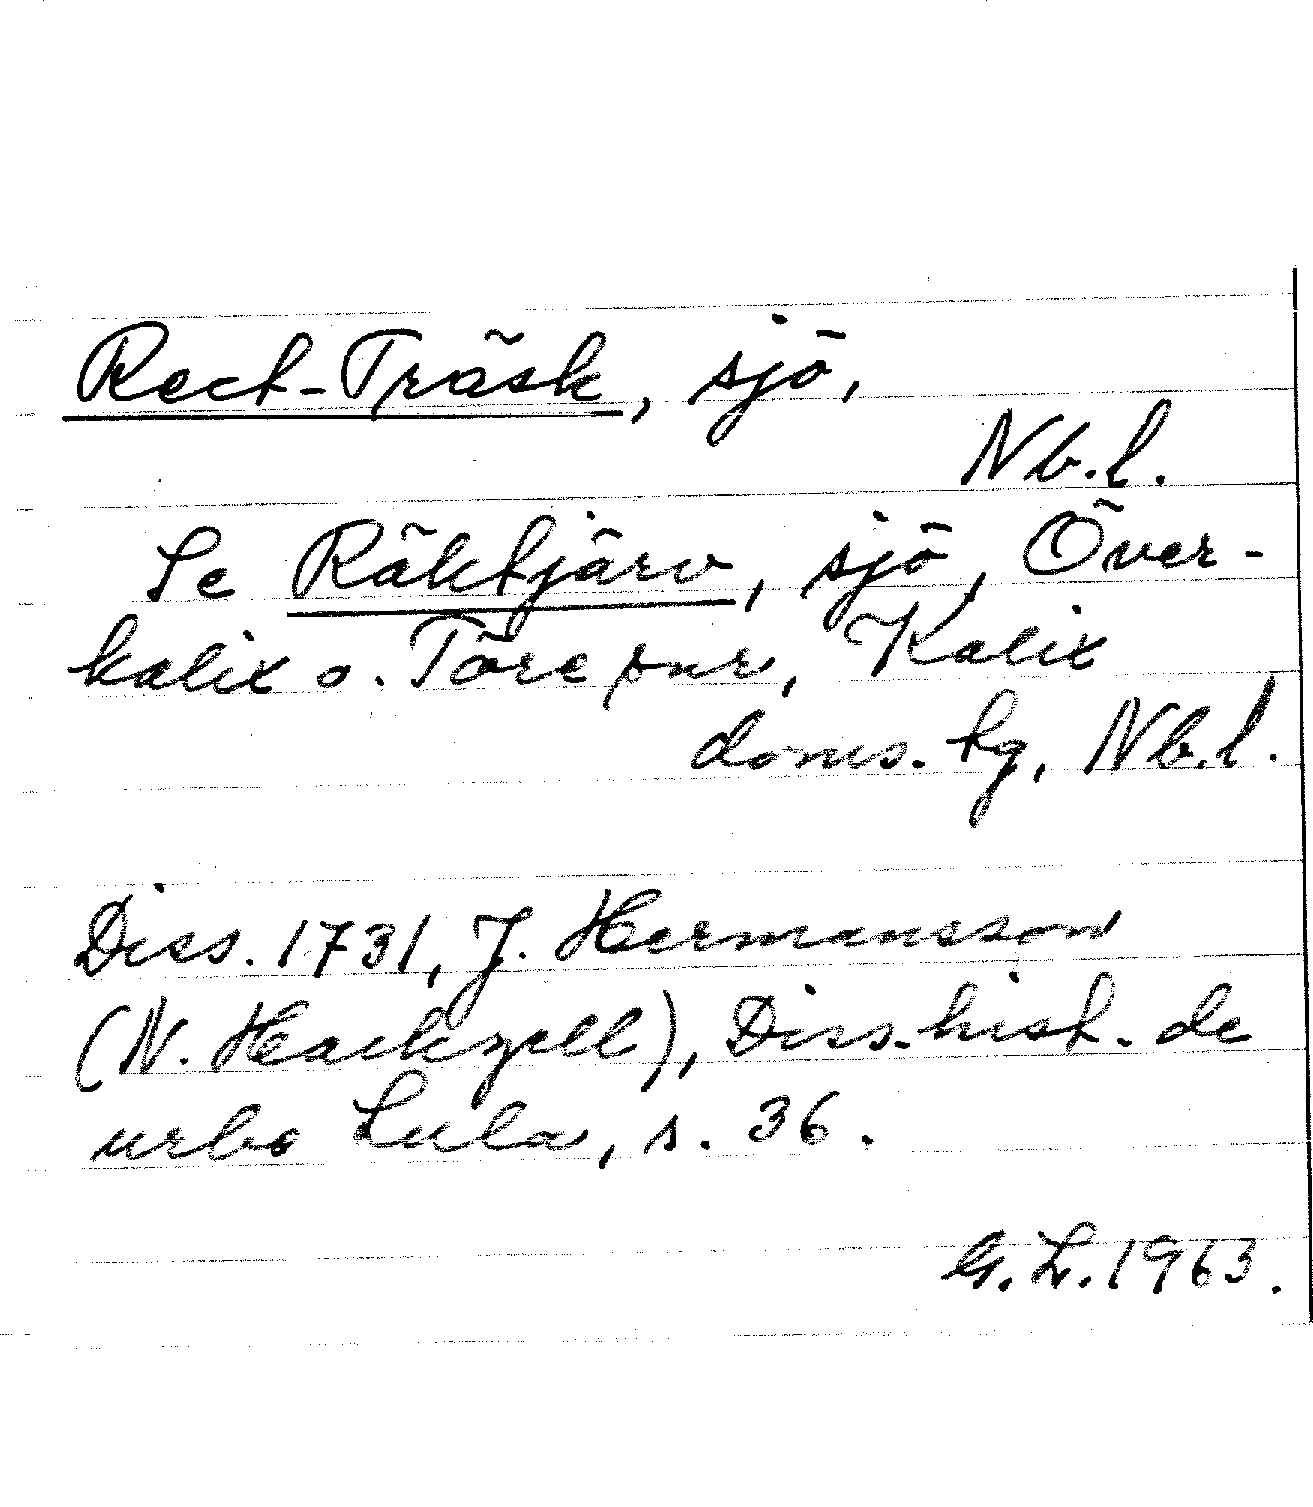 Rect-Träsk, sjö,
Nb.l.
Se Räktjärv, sjö, Över-
kalix o. Töre snr, Kalix
doms. tg, Nb.l.
Diss. 1731, J. Hermansson
(N. Hackzell), Diss. hist. de
urbe Lula, s. 36.
G. L. 1963.